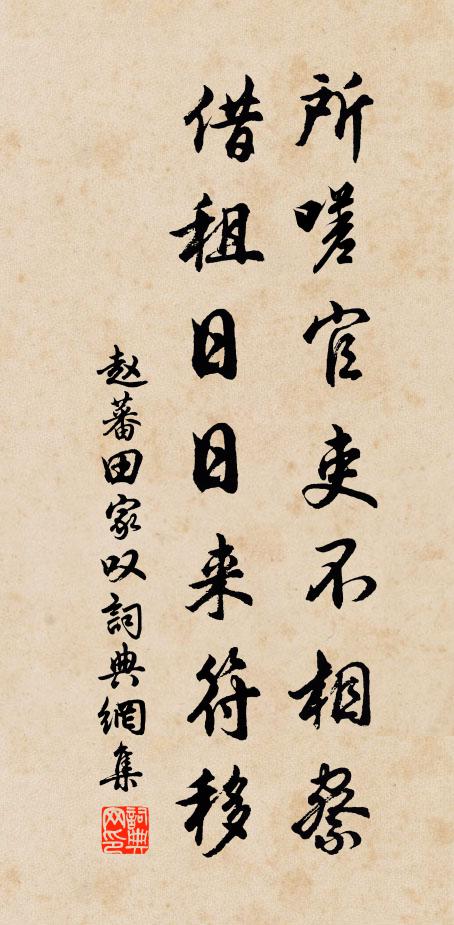 所嗟官吏不相察
借租日日来符移
赵蕃田家叹詞典網集
詞典网印